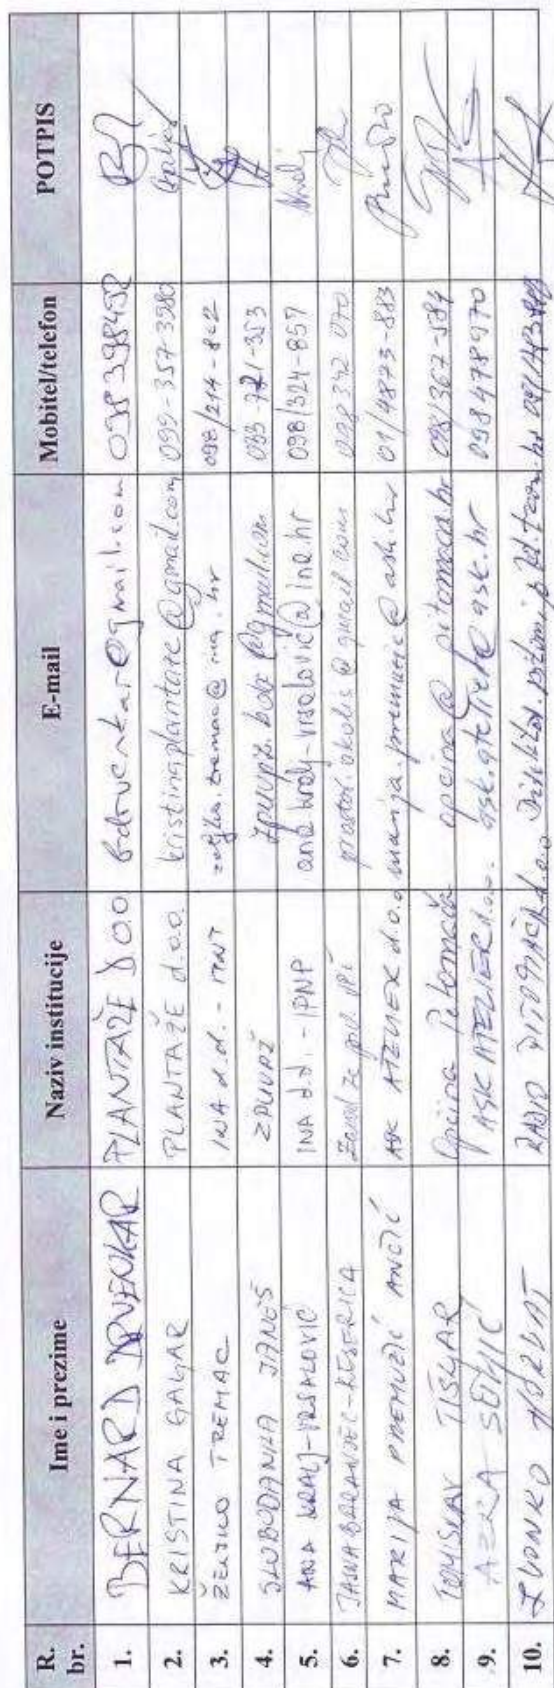 R. br. Ime i prezime Naziv institucije E-mail Mobitel/telefon POTPIS
1. BERNARD DRVENKAR PLANTAŽE D.O.O bdrvenkar@gmail.com 098398452
2. KRISTINA GALJAR PLANTAŽE d.o.o. kristinaplantaze@gmail.com 099-357-3980
3. ŽELJKO TREMAC INA d.d. - zeljko.tremac@ina.hr 098/214-842
4. SLOBODANKA JANEŠ ZPUVPŽ zpuvpz.bobe@gmail.com 033-721-353
5. ANA KRALJ-VRSALOVIĆ INA d.d. - IPNP ana.kralj-vrsalovic@ina.hr 098/324-857
6. JANA BARANJEC-KESERICA Zavod za prostor.okolis@gmail.com 098 342 070
7. MARIJA PREMUŽIĆ ANČIĆ ASK ATELIER d.o.o marija.premuzic@ask.hr 01/4873-883
8. TOMISLAV TIŠLJAR Općina Pitomača opcina@pitomaca.hr 098/367-584
9. AZRA SULJIĆ ASK ATELIER d.o.o. ask.atelier@ask.hr 098478970
10. ZVONKO HORVAT RADIO PITOMAČA d.o.o.